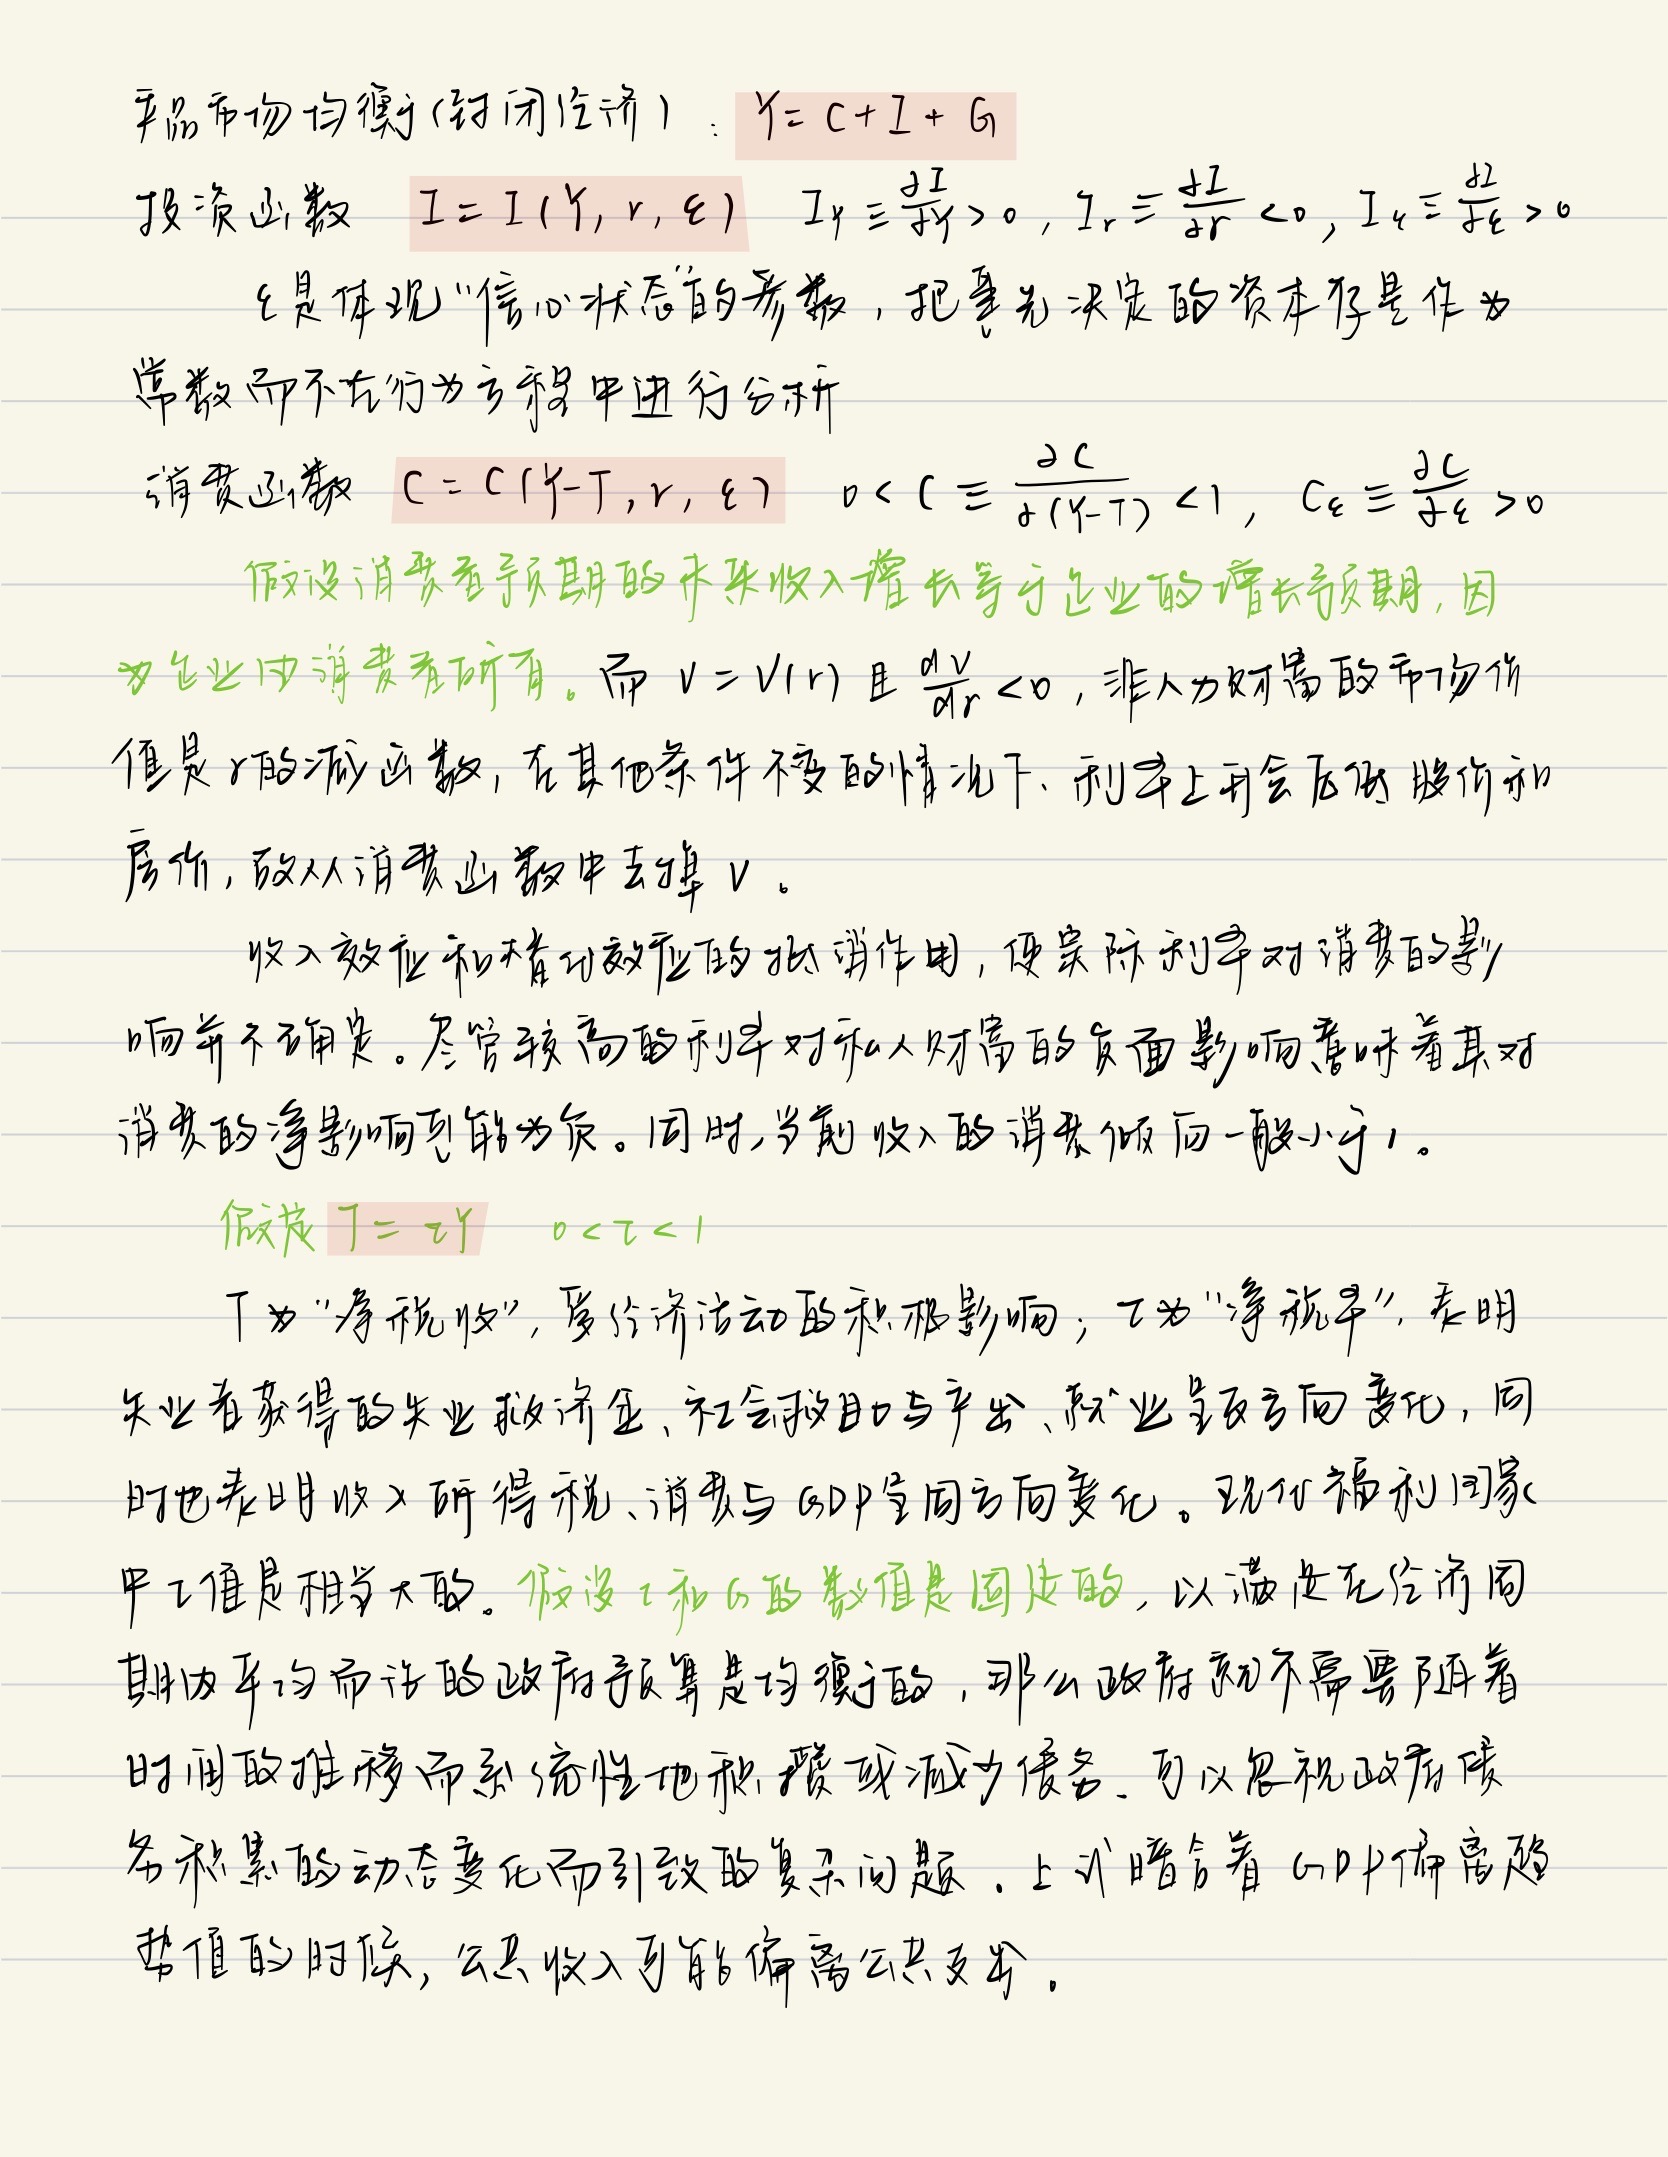 产品市场均衡(封闭经济): Y = C + I + G
投资函数 I = I(Y, r, ε) I_Y ≡ ∂I/∂Y > 0, I_r ≡ ∂I/∂r < 0, I_ε ≡ ∂I/∂ε > 0
ε是体现“信心状态”的参数,把事先决定的资本存量作为
常数而不在行为方程中进行分析
消费函数 C = C(Y-T, r, ε) 0 < C ≡ ∂C/∂(Y-T) < 1, C_ε ≡ ∂C/∂ε > 0
假设消费者预期的未来收入增长等于企业的增长预期,因
为企业由消费者所有。而 V = V(r) 且 dV/dr < 0,非人力财富的市场价
值是r的减函数,在其他条件不变的情况下、利率上升会压低股价和
房价,故从消费函数中去掉 V。
收入效应和替代效应的抵消作用,使实际利率对消费的影
响并不确定。尽管较高的利率对私人财富的负面影响意味着其对
消费的净影响可能为负。同时,当前收入的消费倾向一般小于1。
假定 T = τY 0 < τ < 1
T为“净税收”,受经济活动的积极影响;τ为“净税率”,表明
失业者获得的失业救济金、社会救助与产出、就业呈反方向变化,同
时也表明收入所得税、消费与GDP呈同方向变化。现代福利国家
中τ值是相当大的。假设τ和G的数值是固定的,以满足在经济周
期内平均而许的政府预算是均衡的,那么政府就不需要随着
时间的推移而系统性地积攒或减少债务、可以忽视政府债
务积累的动态变化而引致的复杂问题.上式暗含着GDP偏离趋
势值的时候,公共收入可能偏离公共支出.